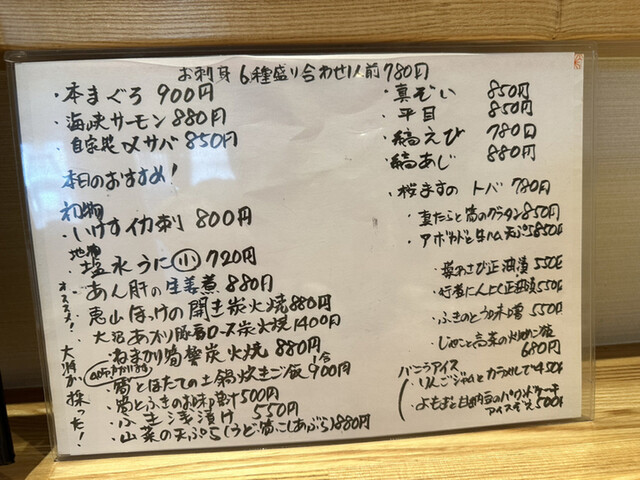 お刺身6種盛り合わせ1人前780円
・本まぐろ 900円
・海峡サーモン 880円
・自家製〆サバ 850円
本日のおすすめ!
初物
・いけすイカ刺 800円
地物
・塩水うに㊙小 720円
オススメ!
・あん肝の生姜煮 880円
・恵山ほっけの開き炭火焼 880円
・大沼あかり豚肩ロース炭火焼 1400円
・ねまがり筍 炭火焼 880円
大将が採った!
・筍とほたての土鍋炊きご飯 1合 900円
・筍とふきのお味噌汁 500円
・ふき浅漬け 550円
・山菜の天ぷら(うど・筍・こしあぶら) 880円
・真ぞい 850円
・平目 850円
・縞えび 780円
・縞あじ 880円
・桜ますのトバ 780円
・真たらと筍のグラタン 850円
・アボカドと生ハム天ぷら 850円
・葉わさび正油漬 550円
・行者にんにく正油漬 550円
・ふきのとう味噌 550円
・じゃこと高菜の炒めご飯
680円
バニラアイス
・りんごジャムとカラメルで 450円
・よもぎと白納豆のパウンドケーキ
アイス添え 500円